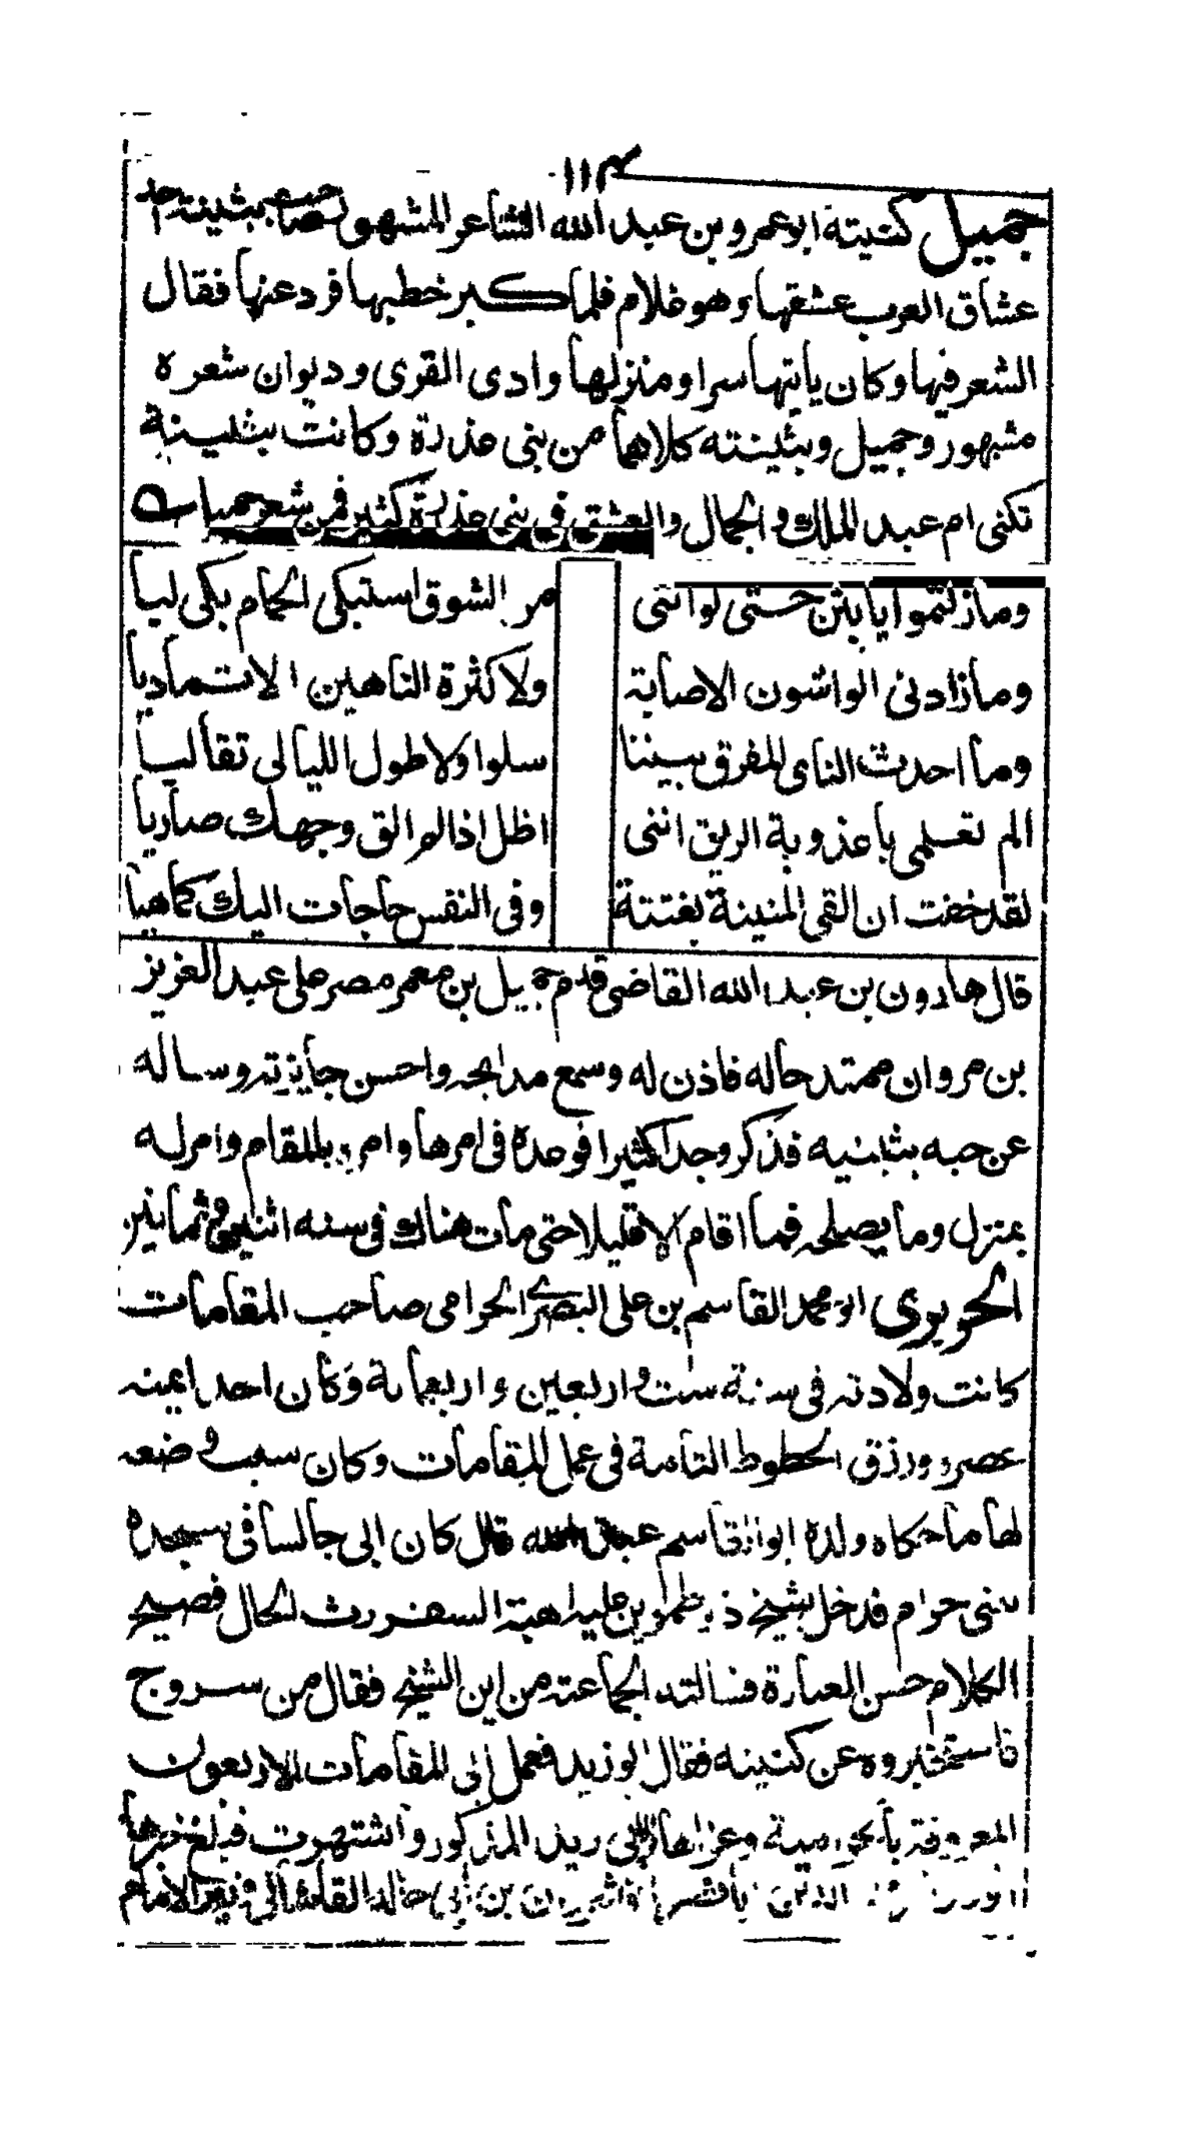 ١١٣
جميل كنيته ابو عمرو بن عبد الله الشاعر المشهور صاحب بثينة احد
عشاق العرب عشقها وهو غلام فلما كبر خطبها فرد عنها فقال
الشعر فيها وكان ياتيها سرا ومنزلها وادى القرى وديوان شعره
مشهور وجميل وبثينته كلاهما من بنى عذرة وكانت بثينة
تكنى ام عبد الملك والجمال والعشق فى بنى عذرة كثير فمن شعر جميل
ومازلتموا يا بثن حتى لو اننى من الشوق استبكى الحمام بكى ليا
ومازادنى الواشون الاصابة ولا كثرة الناهين الا تماديا
وما احدث الناى المفرق بيننا سلوا ولا طول الليالى تقاليا
الم تعلمى يا عذوبة الريق اننى اظل اذا لم الق وجهك صاديا
لقد خفت ان القى المنية بغتة وفى النفس حاجات اليك كماهيا
قال هارون بن عبد الله القاضى قدم جميل بن معمر مصر على عبد العزيز
بن مروان ممتدحاله فاذن له وسمع مدايحه واحسن جايزته وساله
عن حبه بثينيه فذكر وجدا كثيرا فوعده فى امرها وامره بالمقام وامر له
بمنزل وما يصلحه فما اقام الا قليلا حتى مات هناك فى سنه اثنين وثمانين
الحريرى ابو محمد القاسم بن على البصرى الحرامى صاحب المقامات
كانت ولادته فى سنة ست واربعين واربعماية وكان احد ايمنه
عصره ورزق الحظوط التامة فى عمل المقامات وكان سبب وضعه
لها ما حكاه ولده ابو القاسم عبد الله قال كان ابى جالسا فى مسجده
ببنى حرام فدخل شيخ ذو طمرين عليه اهبة السفر رث الحال فصيح
الكلام حسن العبارة فسالته الجماعته من اين الشيخ فقال من سروج
فاستخبروه عن كنينه فقال ابو زيد فعمل ابى المقامات الاربعون
المعروفة بالحرامية وعزاها الى ابى زيد المذكور واشتهرت فبلغ خبرها
الوزير شرف الدين انوشروان بن خالد القاشانى وزير الامام